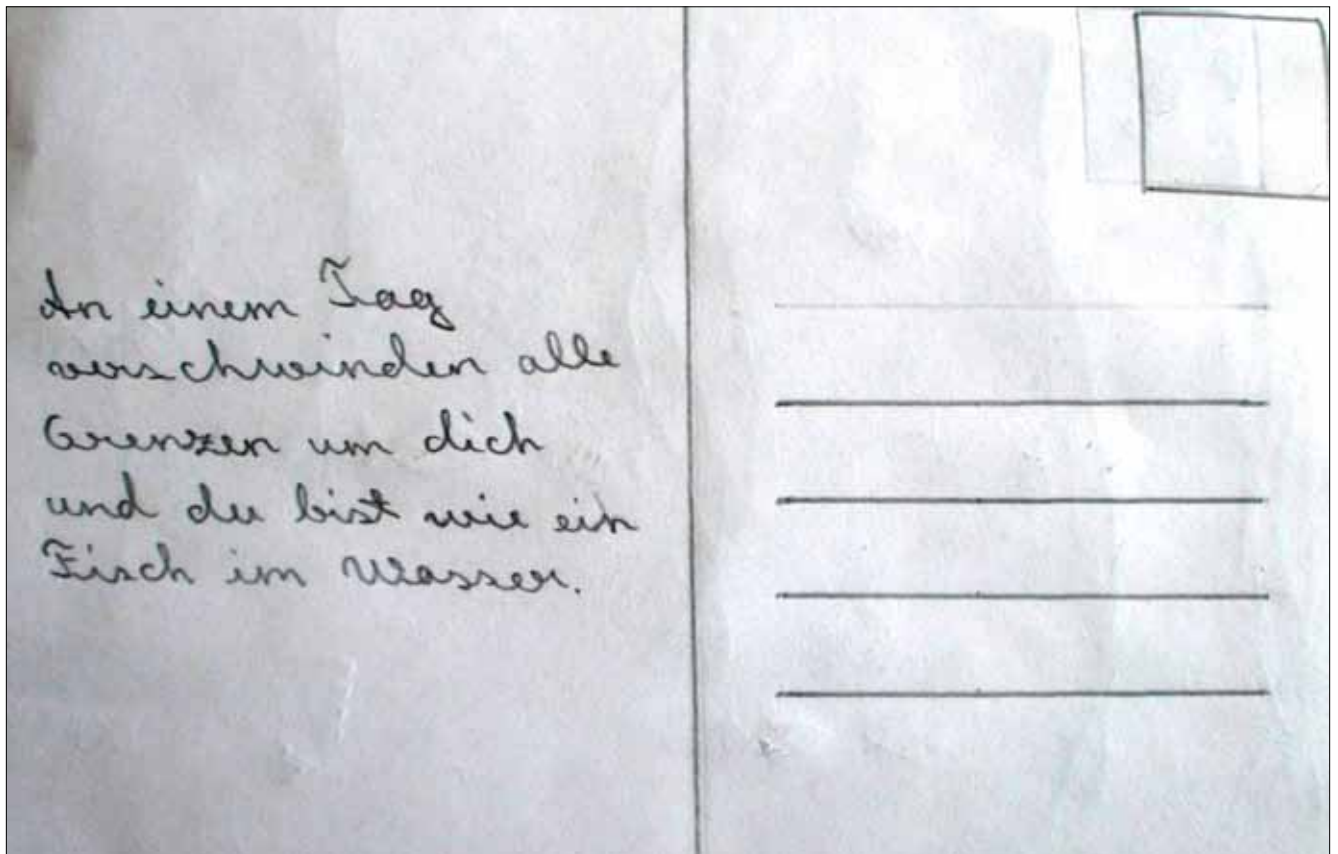 An einem Tag
verschwinden alle
Grenzen um dich
und du bist wie ein
Fisch im Wasser.